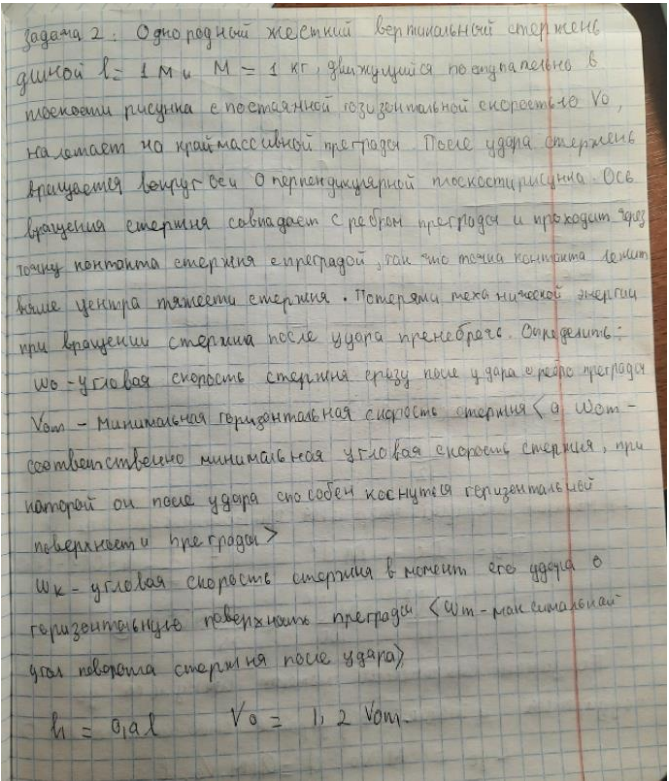 Задача 2: Однородный жесткий вертикальный стержень
длиной l = 1 м и M = 1 кг, движущийся поступательно в
плоскости рисунка с постоянной горизонтальной скоростью V₀,
налетает на край массивной преграды. После удара стержень
вращается вокруг оси О перпендикулярной плоскости рисунка. Ось
вращения стержня совпадает с ребром преграды и проходит через
точку контакта стержня с преградой, так что точка контакта лежит
выше центра тяжести стержня. Потерями механической энергии
при вращении стержня после удара пренебречь. Определить:
ω₀ - угловая скорость стержня сразу после удара о ребро преграды
V₀m - минимальная горизонтальная скорость стержня < а ω₀m -
соответственно минимальная угловая скорость стержня, при
которой он после удара способен коснуться горизонтальной
поверхности преграды >
ωк - угловая скорость стержня в момент его удара о
горизонтальную поверхность преграды < ωm - максимальный
угол поворота стержня после удара >
h = 0,al V₀ = 1,2 V₀m.